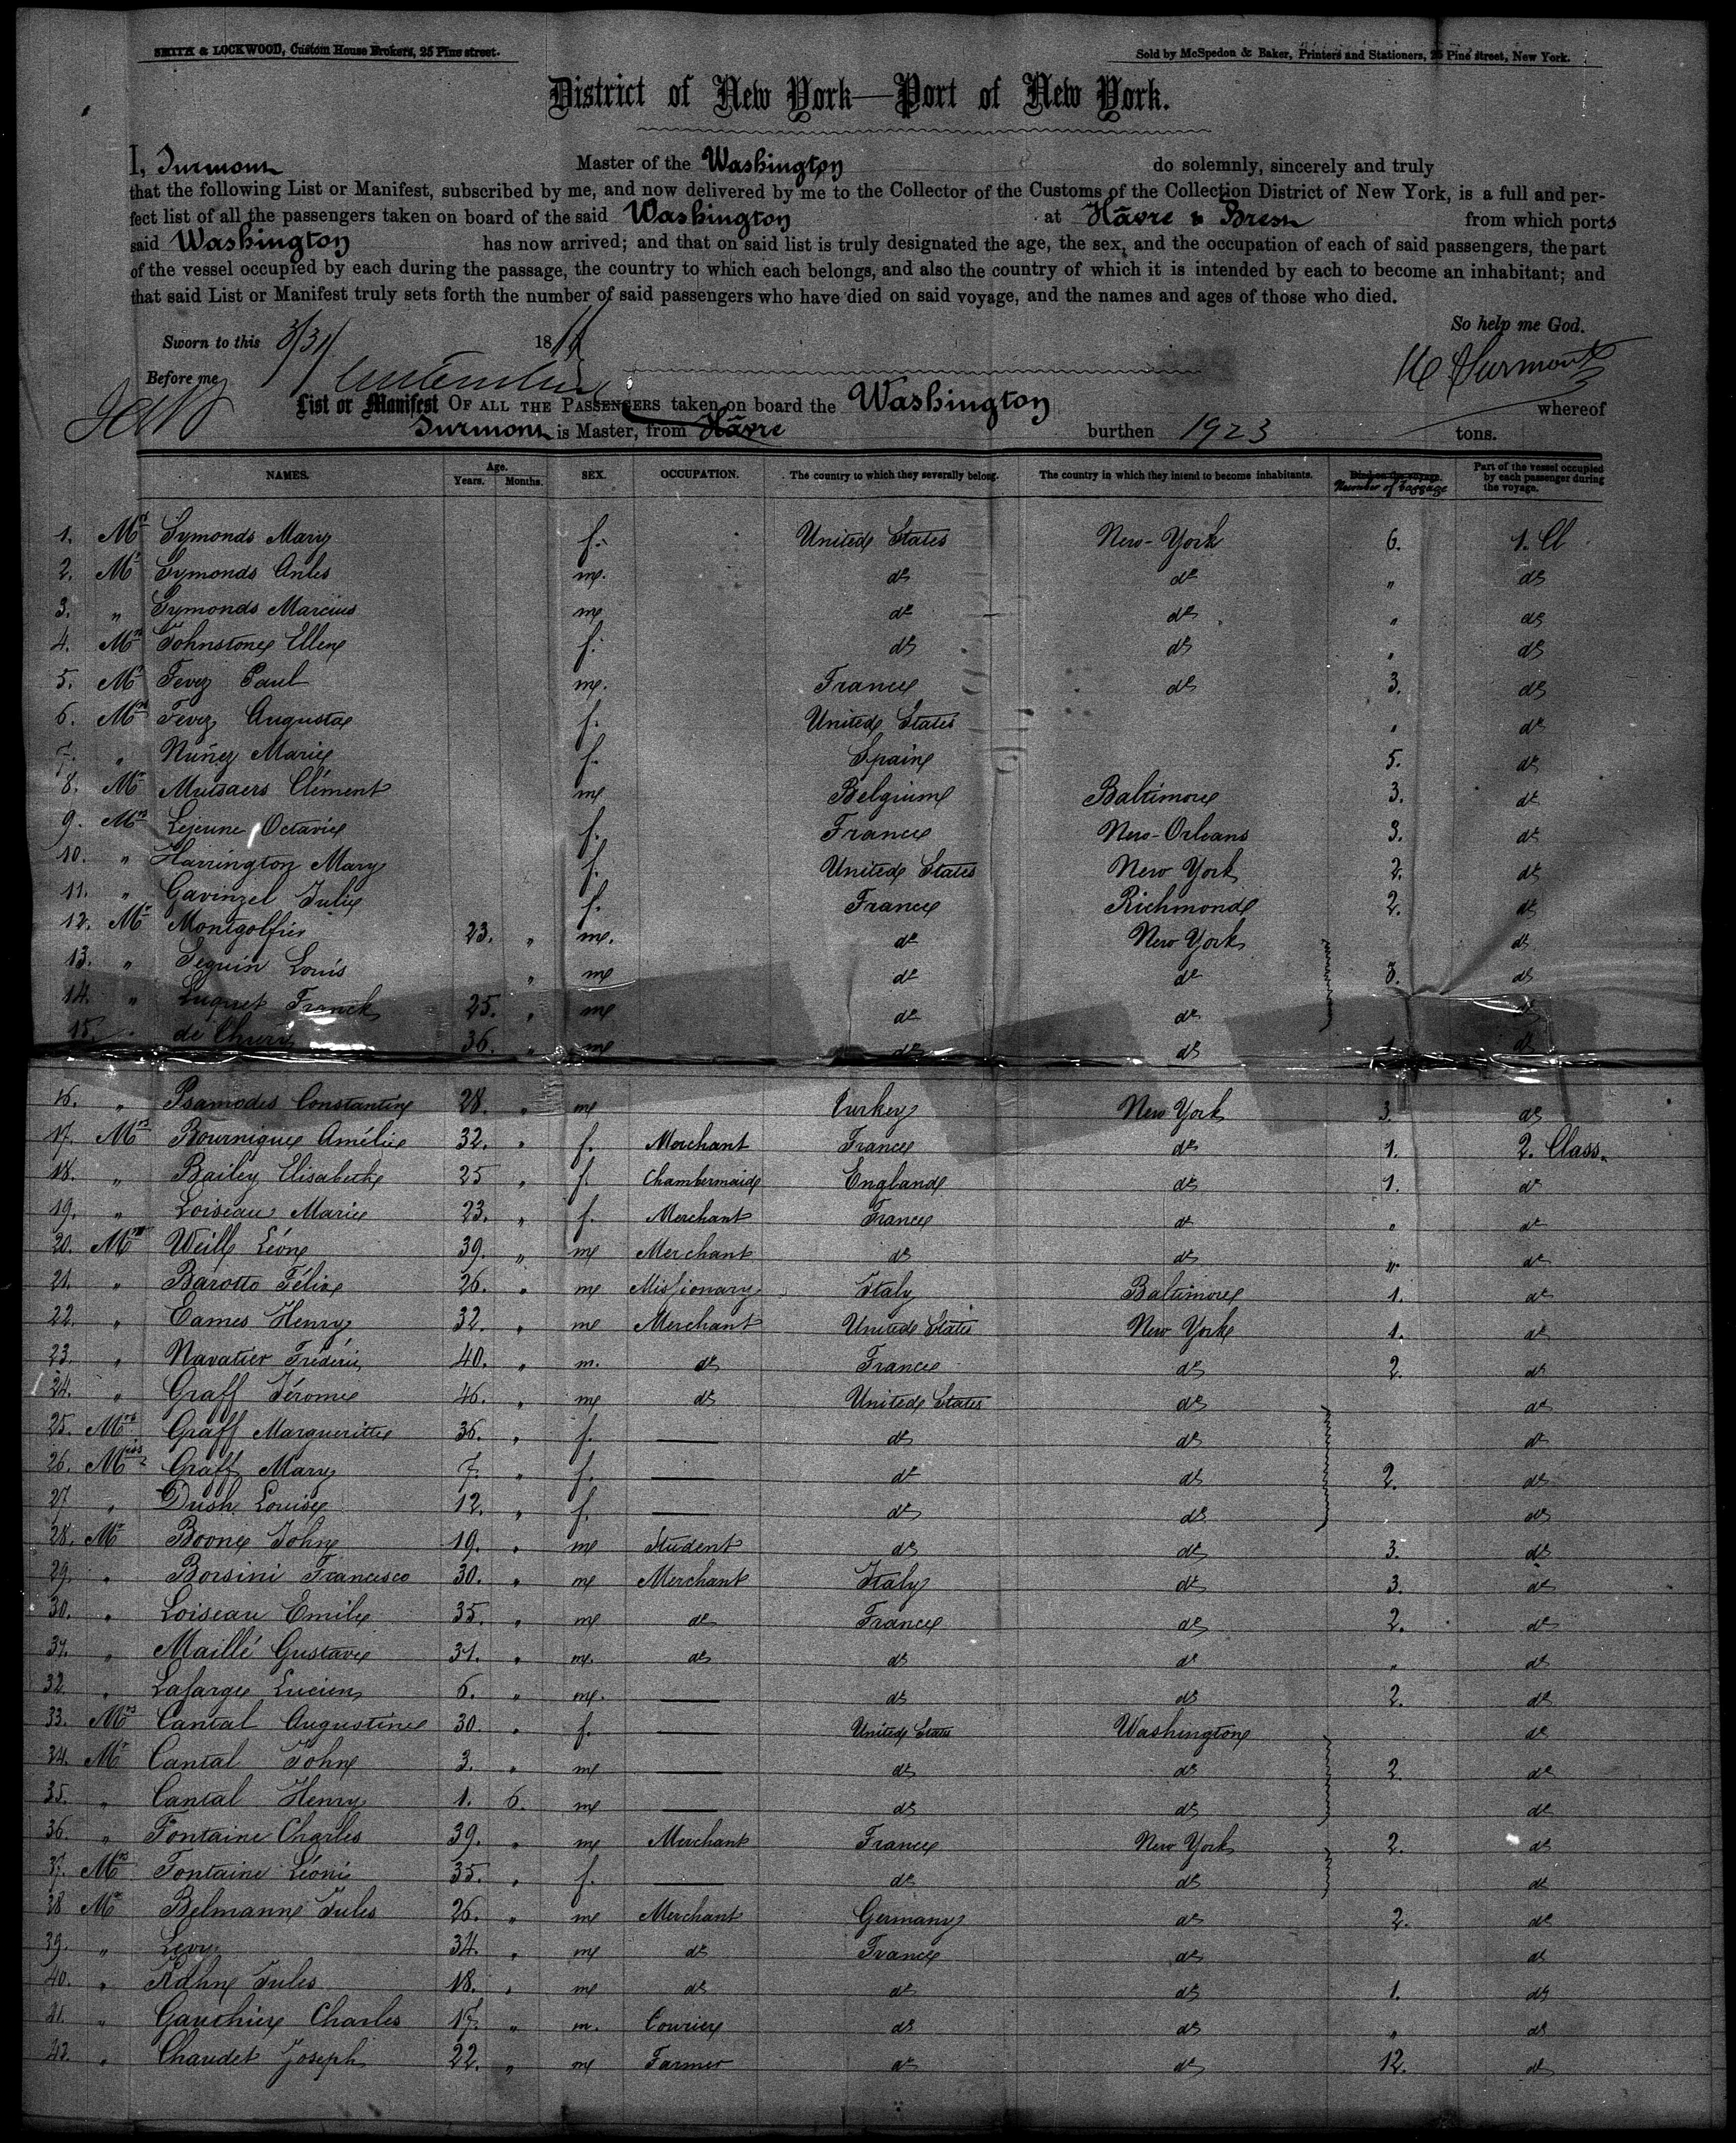 SMITH & LOCKWOOD, Custom House Brokers, 25 Pine street.
Sold by McSpedon & Baker, Printers and Stationers, 25 Pine street, New York.
District of New York—Port of New York.
I, Surmont Master of the Washington do solemnly, sincerely and truly
that the following List or Manifest, subscribed by me, and now delivered by me to the Collector of the Customs of the Collection District of New York, is a full and per-
fect list of all the passengers taken on board of the said Washington at Hâvre & Brest from which ports
said Washington has now arrived; and that on said list is truly designated the age, the sex, and the occupation of each of said passengers, the part
of the vessel occupied by each during the passage, the country to which each belongs, and also the country of which it is intended by each to become an inhabitant; and
that said List or Manifest truly sets forth the number of said passengers who have died on said voyage, and the names and ages of those who died.
So help me God.
Sworn to this 3/31 18
Before me
Surmont
List or Manifest OF ALL THE PASSENGERS taken on board the Washington whereof
Surmont is Master, from Hâvre burthen 1923 tons.
NAMES. Age. Years. Months. SEX. OCCUPATION. The country to which they severally belong. The country in which they intend to become inhabitants. Number of baggage Part of the vessel occupied by each passenger during the voyage.
1. Mrs Symonds Mary f. United States New-York 6. 1. Cl
2. Mr Symonds m. do do " do
3. " Symonds Marcius m do do " do
4. Mrs Johnstone Ellen f. do do " do
5. Mr Fevez Paul m. France do 3. do
6. Mrs Fevez Augusta f. United States " do
7. " Nuñez Marie f. Spain 5. do
8. Mr Mutsaers Clément m Belgium Baltimore 3. do
9. Mrs Lejeune Octavie f. France New-Orleans 3. do
10. " Harrington Mary f. United States New York 2. do
11. " Gavinzel Julie f. France Richmond 2. do
12. Mr Montgolfier 23. " m. do New York do
13. " Seguin Louis " m do do 3. do
14. " Luquet Franck 25. " m do do do
15. " de 36. " m do do 1. do
16. " Psamodes Constantin 28. " m Turkey New York 3. do
17. Mrs Bournique Amélie 32. " f. Merchant France do 1. 2. Class.
18. " Bailey Elisabeth 25 " f. Chambermaid England do 1. do
19. " Loiseau Marie 23. " f. Merchant France do " do
20. Mr Weill Léon 39. " m Merchant do do " do
21. " Barotto Félix 26. " m Missionary Italy Baltimore 1. do
22. " Eames Henry 32. " m Merchant United States New York 1. do
23. " Navatier Fréderic 40. " m. do France do 2. do
24. " Graff Jérome 46. " m do United States do do
25. Mrs Graff Margueritte 36. " f. — do do do
26. Miss Graff Mary 7. " f. — do do 2. do
27 " Dush Louise 12. " f. — do do do
28. Mr Boone John 19. " m Student do do 3. do
29. " Borsini Francesco 30. " m Merchant Italy do 3. do
30. " Loiseau Emile 35. " m do France do 2. do
31. " Maillé Gustave 31. " m. do do do " do
32 " Lafarge Lucien 6. " m. — do do 2. do
33. Mrs Cantal Augustine 30. " f. — United States Washington do
34. Mr Cantal John 3. " m — do do 2. do
35. " Cantal Henry 1. 6. m — do do do
36. " Fontaine Charles 39. " m Merchant France New York 2. do
37. Mrs Fontaine Léonie 35. " f. — do do do
38 Mr Belmann Jules 26. " m Merchant Germany do 2. do
39. " Levy 34. " m do France do do
40. " Kahn Jules 18. " m do do do 1. do
41. " Gauthier Charles 17. " m. Courier do do " do
42. " Chaudet Joseph 22. " m Farmer do do 12. do